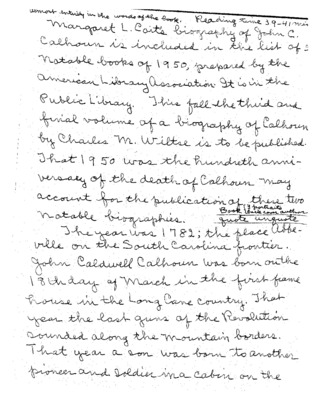 almost entirely in the words of the book. Reading time 39-41 min
Margaret L. Coits biography of John C.
Calhoun is included in the list of
Notable books of 1950, prepared by the
American Library Association It is in the
Public Library. This fall the third and
final volume of a biography of Calhoun
by Charles M. Wiltse is to be published.
That 1950 was the hundreth anni-
versary of the death of Calhoun may
account for the publication of these two
Notable biographies.
quote unquote
The year was 1782; the place Abbe-
ville on the South Carolina frontier.
John Caldwell Calhoun was born on the
18th day of March in the first frame
house in the Long Cane country. That
year the last guns of the Revolution
sounded along the mountain borders.
That year a son was born to another
pioneer and soldier in a cabin on the